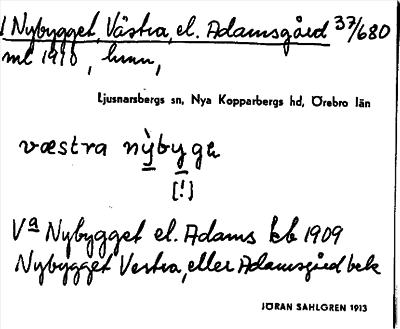 1 Nybygget, Västra, el. Adamsgård 37/680
ml 1910, hmn,
Ljusnarsbergs sn, Nya Kopparbergs hd, Örebro län
væstra nỳbygε
[!]
Vª Nybygget el. Adams kb 1909
Nybygget Vestra, eller Adamsgård bek
JÖRAN SAHLGREN 1913